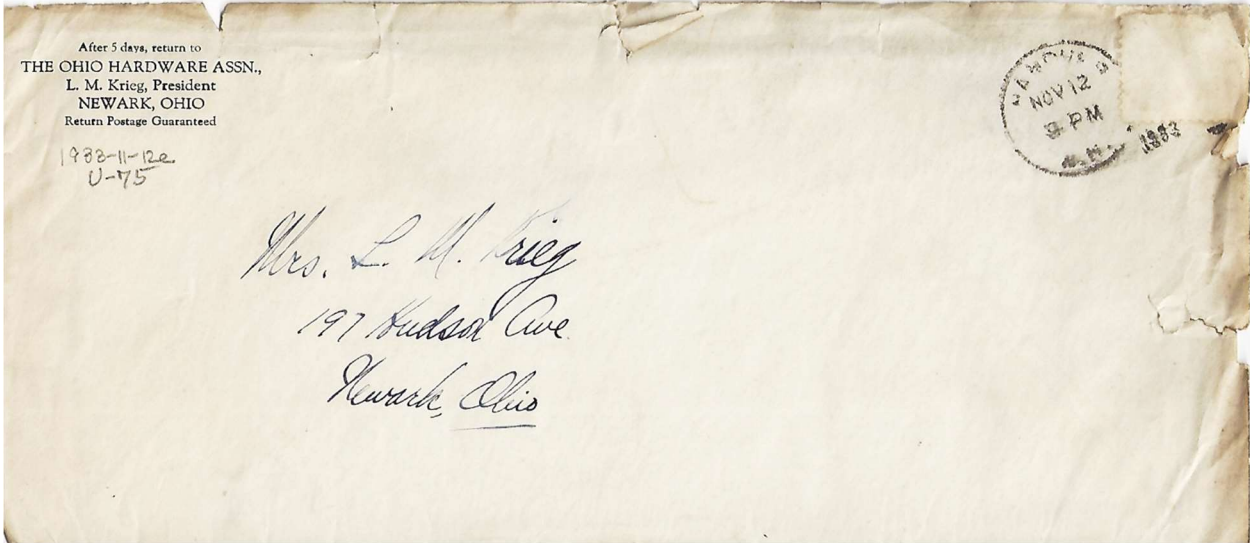 After 5 days, return to
THE OHIO HARDWARE ASSN.,
L. M. Krieg, President
NEWARK, OHIO
Return Postage Guaranteed
1933-11-12e
U-75
NOV 12
PM
1933
Mrs. L. M. Krieg
197 Hudson Ave.
Newark, Ohio